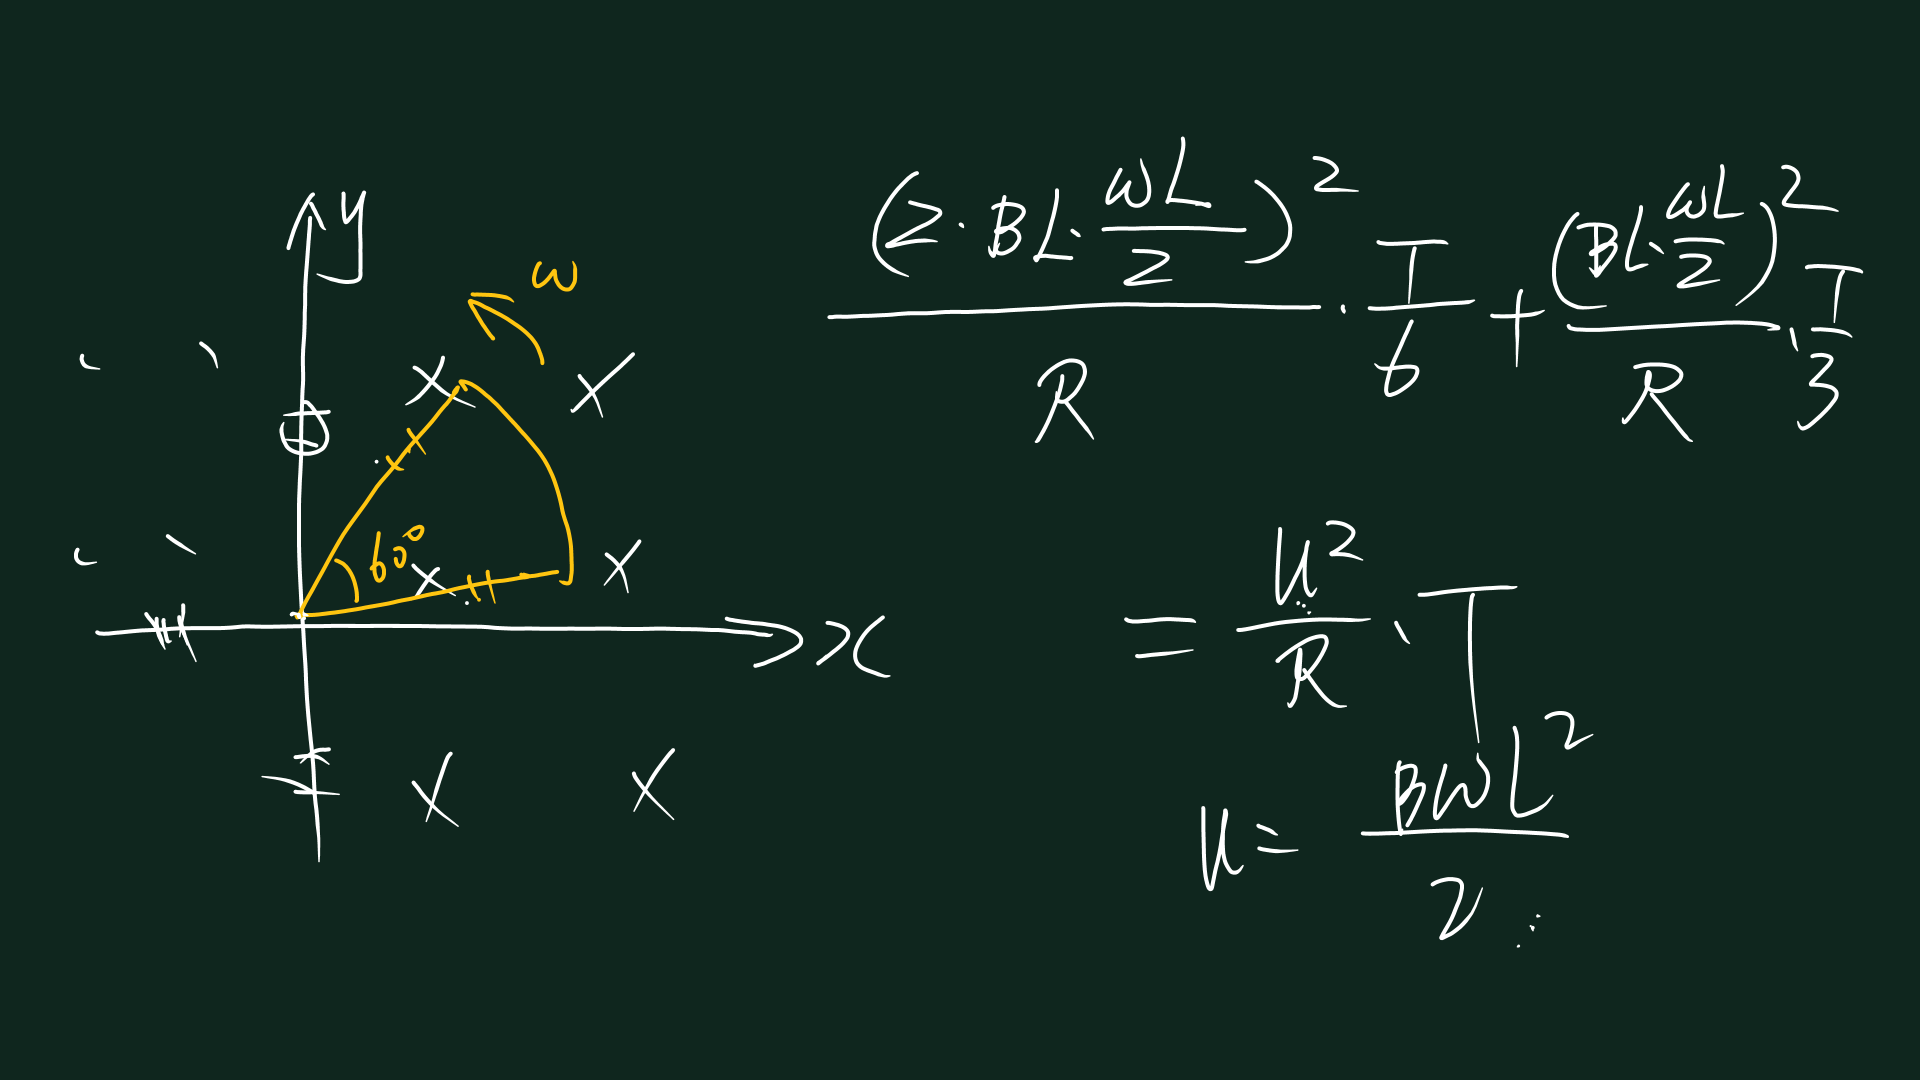 y
ω
60°
x
(2·BL·ωL/2)²/R · T/6 + (BL·ωL/2)²/R · T/3
= U²/R · T
U = BωL²/2